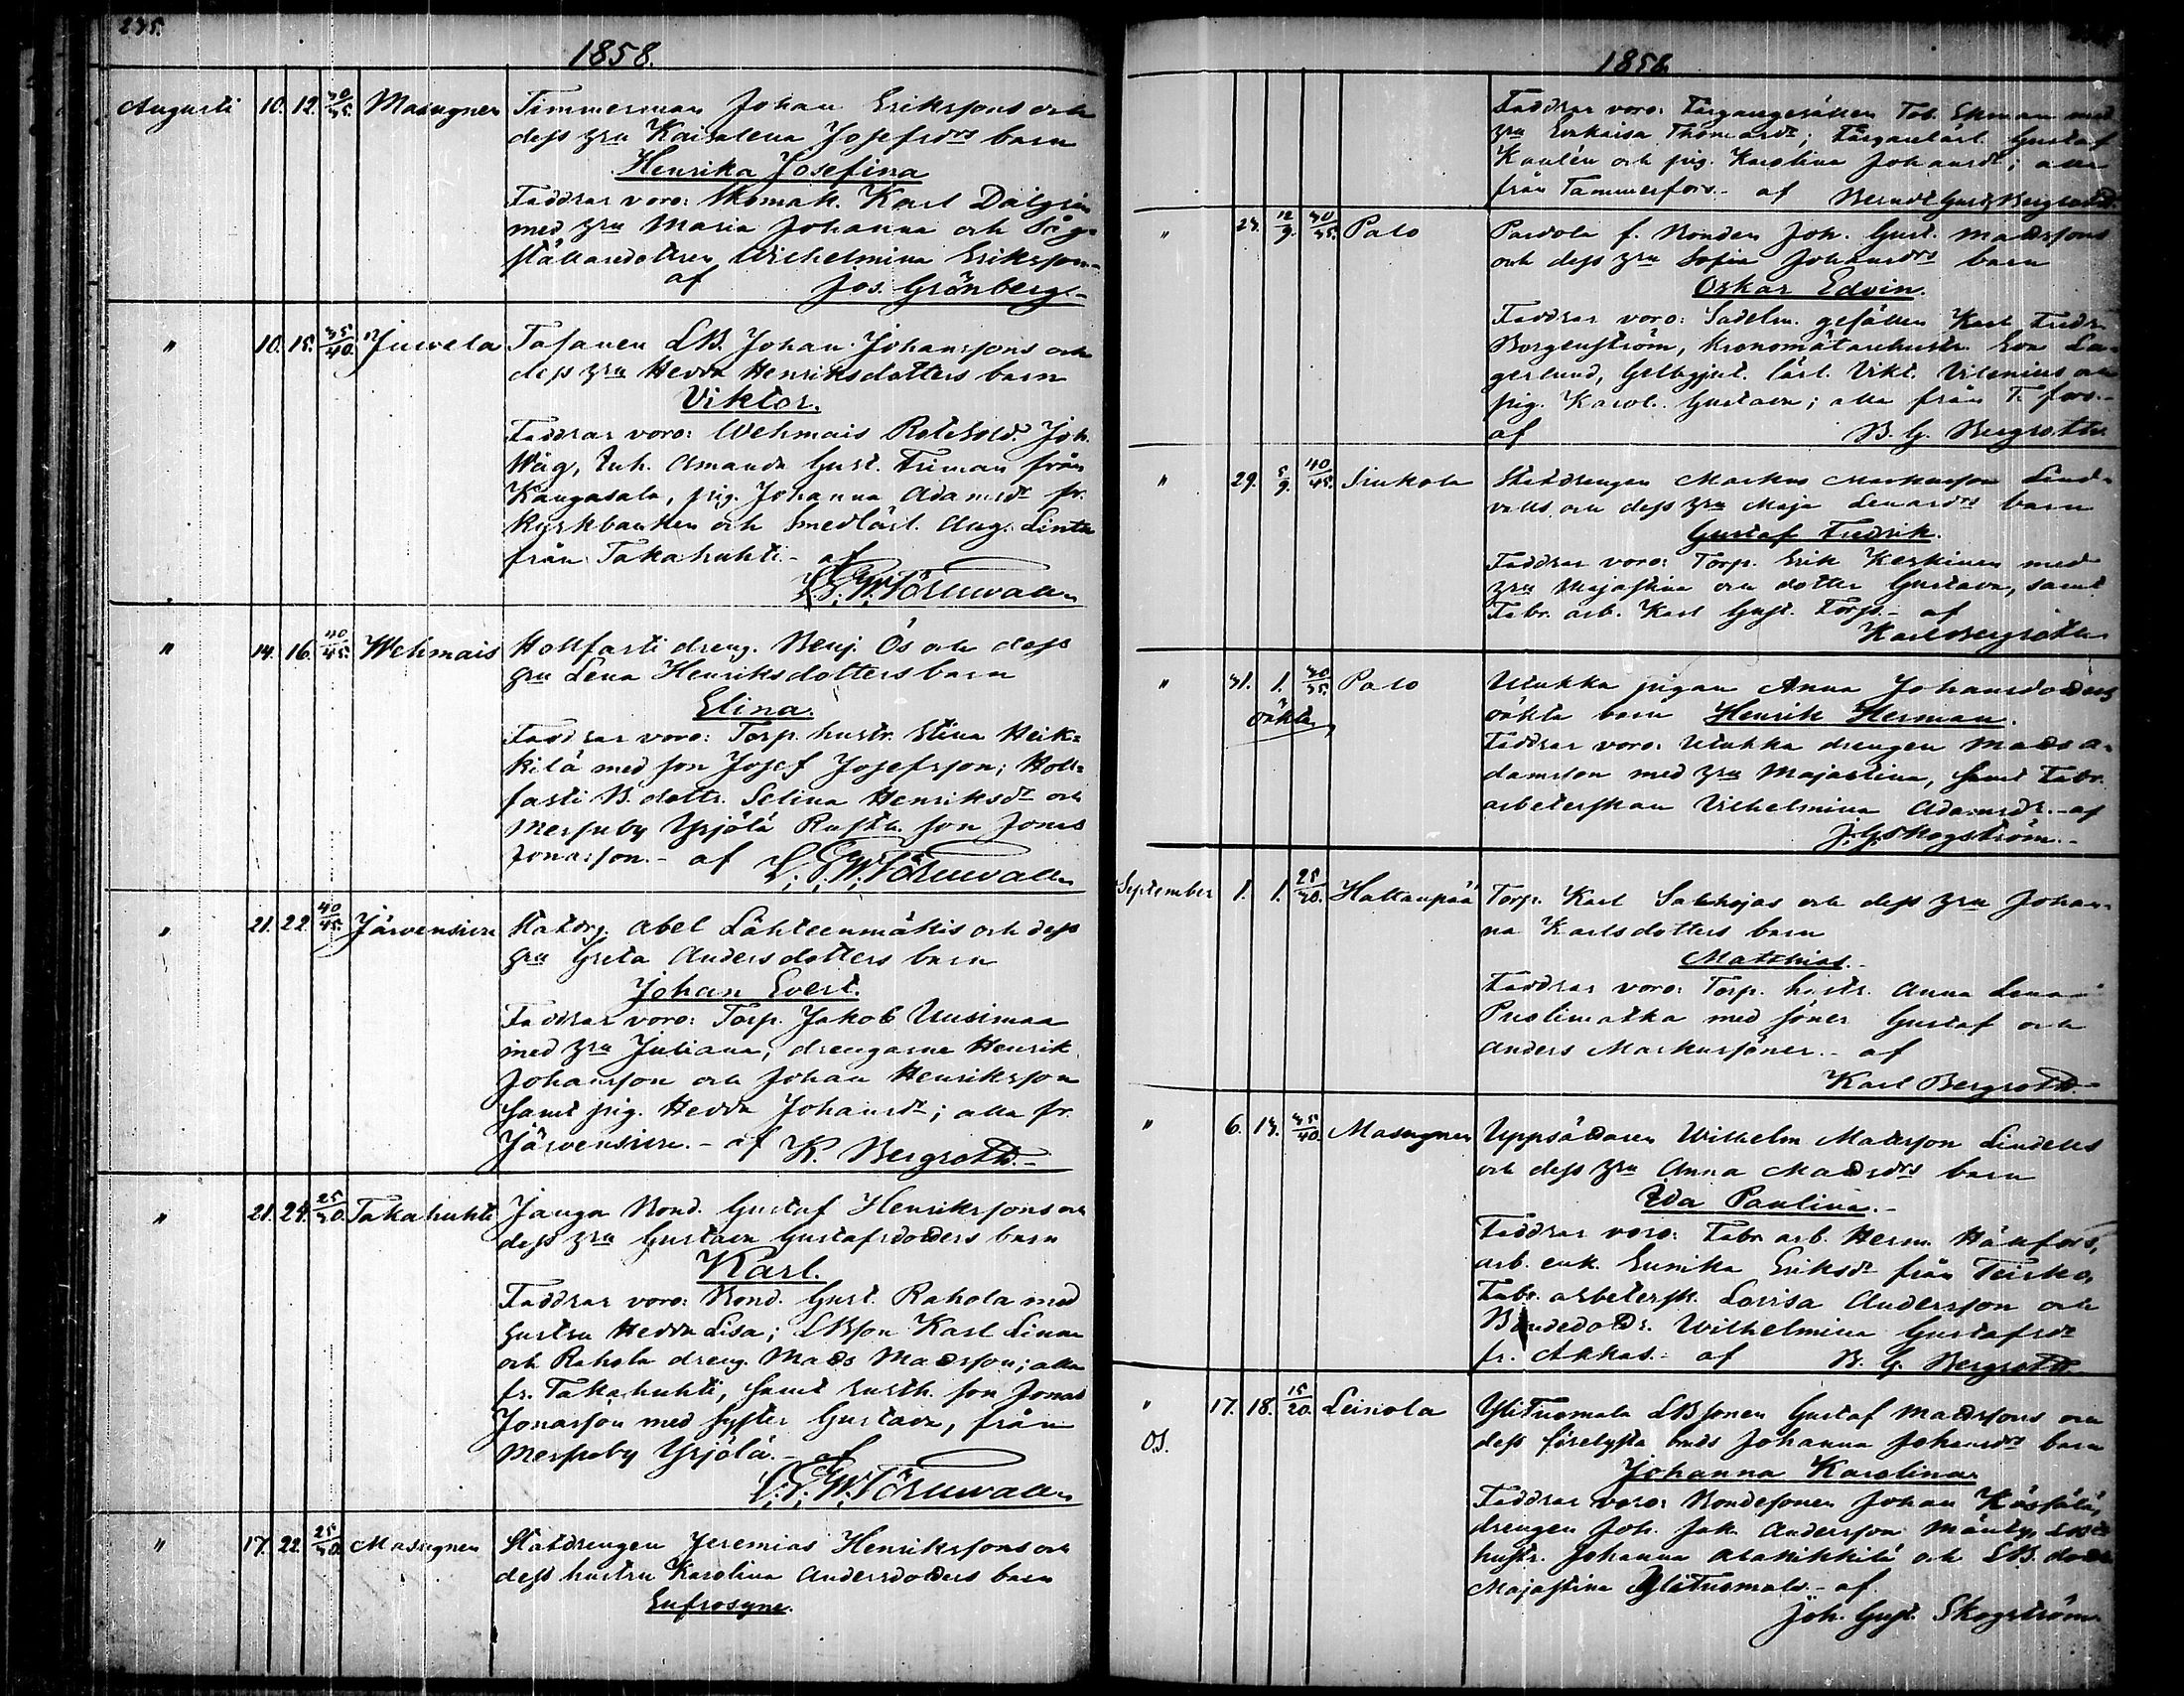 235.
1858.
Augusti 10. 12. 30/35. Masugnen Timmerman Johan Erikssons och
dess hru Kaisalena Josefsdrs barn
Henrika Josefina
Faddrar voro: Skomak. Karl Dalgren
med hru Maria Johanna och Såg-
ställaredottren Wilhelmina Eriksson
af Jos. Grönberg.-
" 10. 15. 35/40. Juvela Tasanen LB. Johan Johanssons och
dess hru Hedda Henriksdotters barn
Viktor.
Faddrar voro: Wehmais Rotesold. Joh.
Wåg, Enk. Amanda Gust. Friman från
Kangasala, pig. Johanna Adamsdr fr.
Kyrkbacken och Smedlärl. Aug. Linta
från Takahuhti.- af
L.F.W. Törnwall
" 14. 16. 40/45. Wehmais Hollfasti dreng. Benj. Ös och dess
hru Lena Henriksdotters barn
Elina.
Faddrar voro: Torp. hustr. Stina Heik-
kilä med son Josef Josefsson; Holl-
fasti B. dottr. Selina Henriksdr och
Messuby Yrjölä Rusth. son Jonas
Jonasson.- af L.F.W. Törnwall
" 21. 22. 40/45. Järvensivu Statdrg. Abel Lähteenmäkis och dess
hru Greta Andersdotters barn
Johan Evert.
Faddrar voro: Torp. Jakob Uusimaa
med hru Juliana, drengarne Henrik
Johansson och Johan Henriksson
samt pig. Hedda Johansdr; alla fr.
Järvensivu.- af K. Bergroth.-
" 21. 24. 25/30. Takahuhti Janga Bond. Gustaf Henrikssons och
dess hru Gustava Gustafsdotters barn
Karl.
Faddrar voro: Bond. Gust. Rahola med
hustru Hedda Lisa; LBson Karl Linna
och Rahola dreng. Mads Madsson; alla
fr. Takahuhti, samt rusth. son Jonas
Jonasson med syster Gustava, från
Messuby Yrjölä.- af
L.F.W. Törnwall
" 17. 22. 25/30. Masugnen Statdrengen Jeremias Henrikssons och
dess hustru Karolina Andersdotters barn
Eufrosyne.
1858.
Faddrar voro: Färgaregesällen Tob. Ekman med
hru Evakaisa Thomasdr; Färgarelärl. Gustaf
Kaulén och pig. Karolina Johansdr; alla
från Tammerfors.- af Berndt Gust. Bergroth.
" 23. 12/9. 30/35. Palo Pardola f. Bonden Joh. Gust. Madssons
och dess hru Sofia Johansdrs barn
Oskar Edvin.
Faddrar voro: Sadelm. gesällen Karl Fredr.
Borgenström, Kronomätarehustr. Eva La-
gerlund, Gelbgjut. lärl. Vikt. Vilenius och
pig. Karol. Gustava; alla från T. fors.-
af B. G. Bergroth
" 29. 5/9. 40/45. Linkola Statdrengen Markus Markusson Lind-
valls och dess hru Maja Lenardrs barn
Gustaf Fredrik.
Faddrar voro: Torp. Erik Keskinen med
hru Majastina och dotter Gustava, samt
Fabr. arb. Karl Gust. Forss.- af
Karl Bergroth
" 31. 1. 30/35. Palo Ulukka pigan Anna Johansdotters
oäkta oäkta barn Henrik Herman.
Faddrar voro: Ulukka drengen Mads A-
damsson med hru Majastina, samt Fabr.
arbeterskan Vilhelmina Adamsdr.- af
J. G. Skogström.-
September 1. 1. 25/30. Hattanpää Torp. Karl Salhojas och dess hru Johan-
na Karlsdotters barn
Matthias.-
Faddrar voro: Torp. hustr. Anna Lena
Puolimatka med söner Gustaf och
Anders Markussöner.- af
Karl Bergroth.-
" 6. 13. 35/40. Masugnen Uppsättaren Wilhelm Matsson Lindells
och dess hru Anna Madsdrs barn
Ida Paulina.-
Faddrar voro: Fabr. arb. Herm. Hänfors,
arb. enk. Eunika Eriksdr från Teisko,
Fabr. arbetersk. Lovisa Andersson och
Bondedottr. Wilhelmina Gustafsdr
fr. Akkas.- af B. G. Bergroth
" 17. 18. 15/20. Leinola YliTuomala LBsonen Gustaf Madssons och
O.J. dess förelysta brud Johanna Johansdrs barn
Johanna Karolina
Faddrar voro: Bondesonen Johan
drengen Joh. Jak. Andersson Mänty,
hustr. Johanna Alakikkilä och LB. dottr
Majastina YliTuomala.- af
Joh. Gust. Skogström